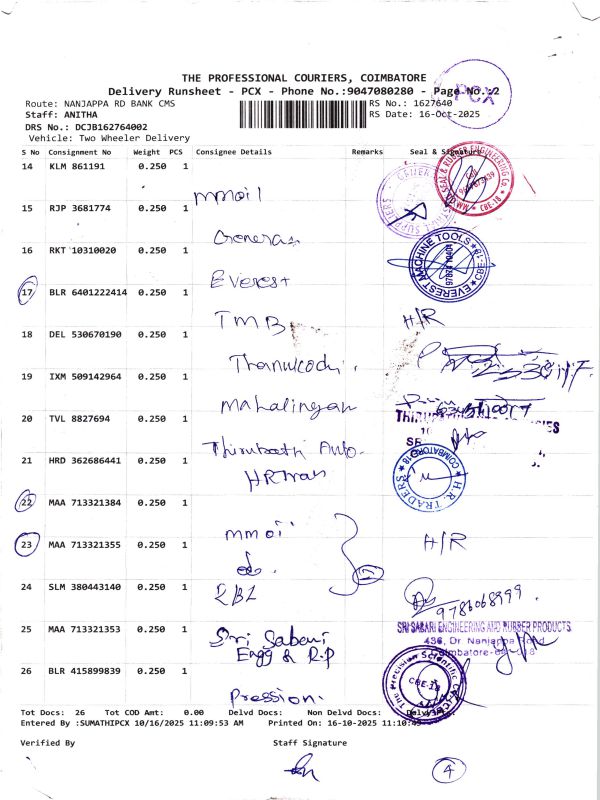 THE PROFESSIONAL COURIERS, COIMBATORE
Delivery Runsheet - PCX - Phone No.:9047080280 - Page No.:2
PCX
Route: NANJAPPA RD BANK CMS
RS No.: 1627640
Staff: ANITHA
RS Date: 16-Oct-2025
DRS No.: DCJB162764002
Vehicle: Two Wheeler Delivery
S No Consignment No Weight PCS Consignee Details Remarks Seal & Signature
14 KLM 861191 0.250 1
mmoil
15 RJP 3681774 0.250 1
General
16 RKT 10310020 0.250 1
EVEREST MACHINE TOOLS
CBE-18
Everest
17 BLR 6401222414 0.250 1
TMB H/R
18 DEL 530670190 0.250 1
19 IXM 509142964 0.250 1
Mahalingam
20 TVL 8827694 0.250 1
Thirupathi Auto
21 HRD 362686441 0.250 1
H.R. TRADERS
COIMBATORE-18
HR Traders
22 MAA 713321384 0.250 1
mmoil
23 MAA 713321355 0.250 1
H/R
do.
24 SLM 380443140 0.250 1
RBL
9786068999.
25 MAA 713321353 0.250 1
SRI SABARI ENGINEERING AND RUBBER PRODUCTS
436, Dr. Nanjappa Road
Coimbatore-641 018
Sri Sabari
Engg & R.P
26 BLR 415899839 0.250 1
The Precision Scientific
CBE-18
Pression.
Tot Docs: 26 Tot COD Amt: 0.00 Delvd Docs: Non Delvd Docs:
Entered By :SUMATHIPCX 10/16/2025 11:09:53 AM Printed On: 16-10-2025 11:10:45
Verified By Staff Signature
4